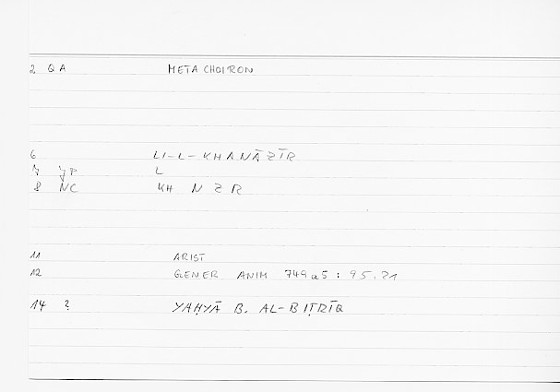 2 QA METACHOIRON
6 LI-L-KHANĀZĪR
7 L
8 NC KH N Z R
11 ARIST
12 GENER ANIM 749a5 : 95.21
14 ? YAḤYĀ B. AL-BIṬRĪQ